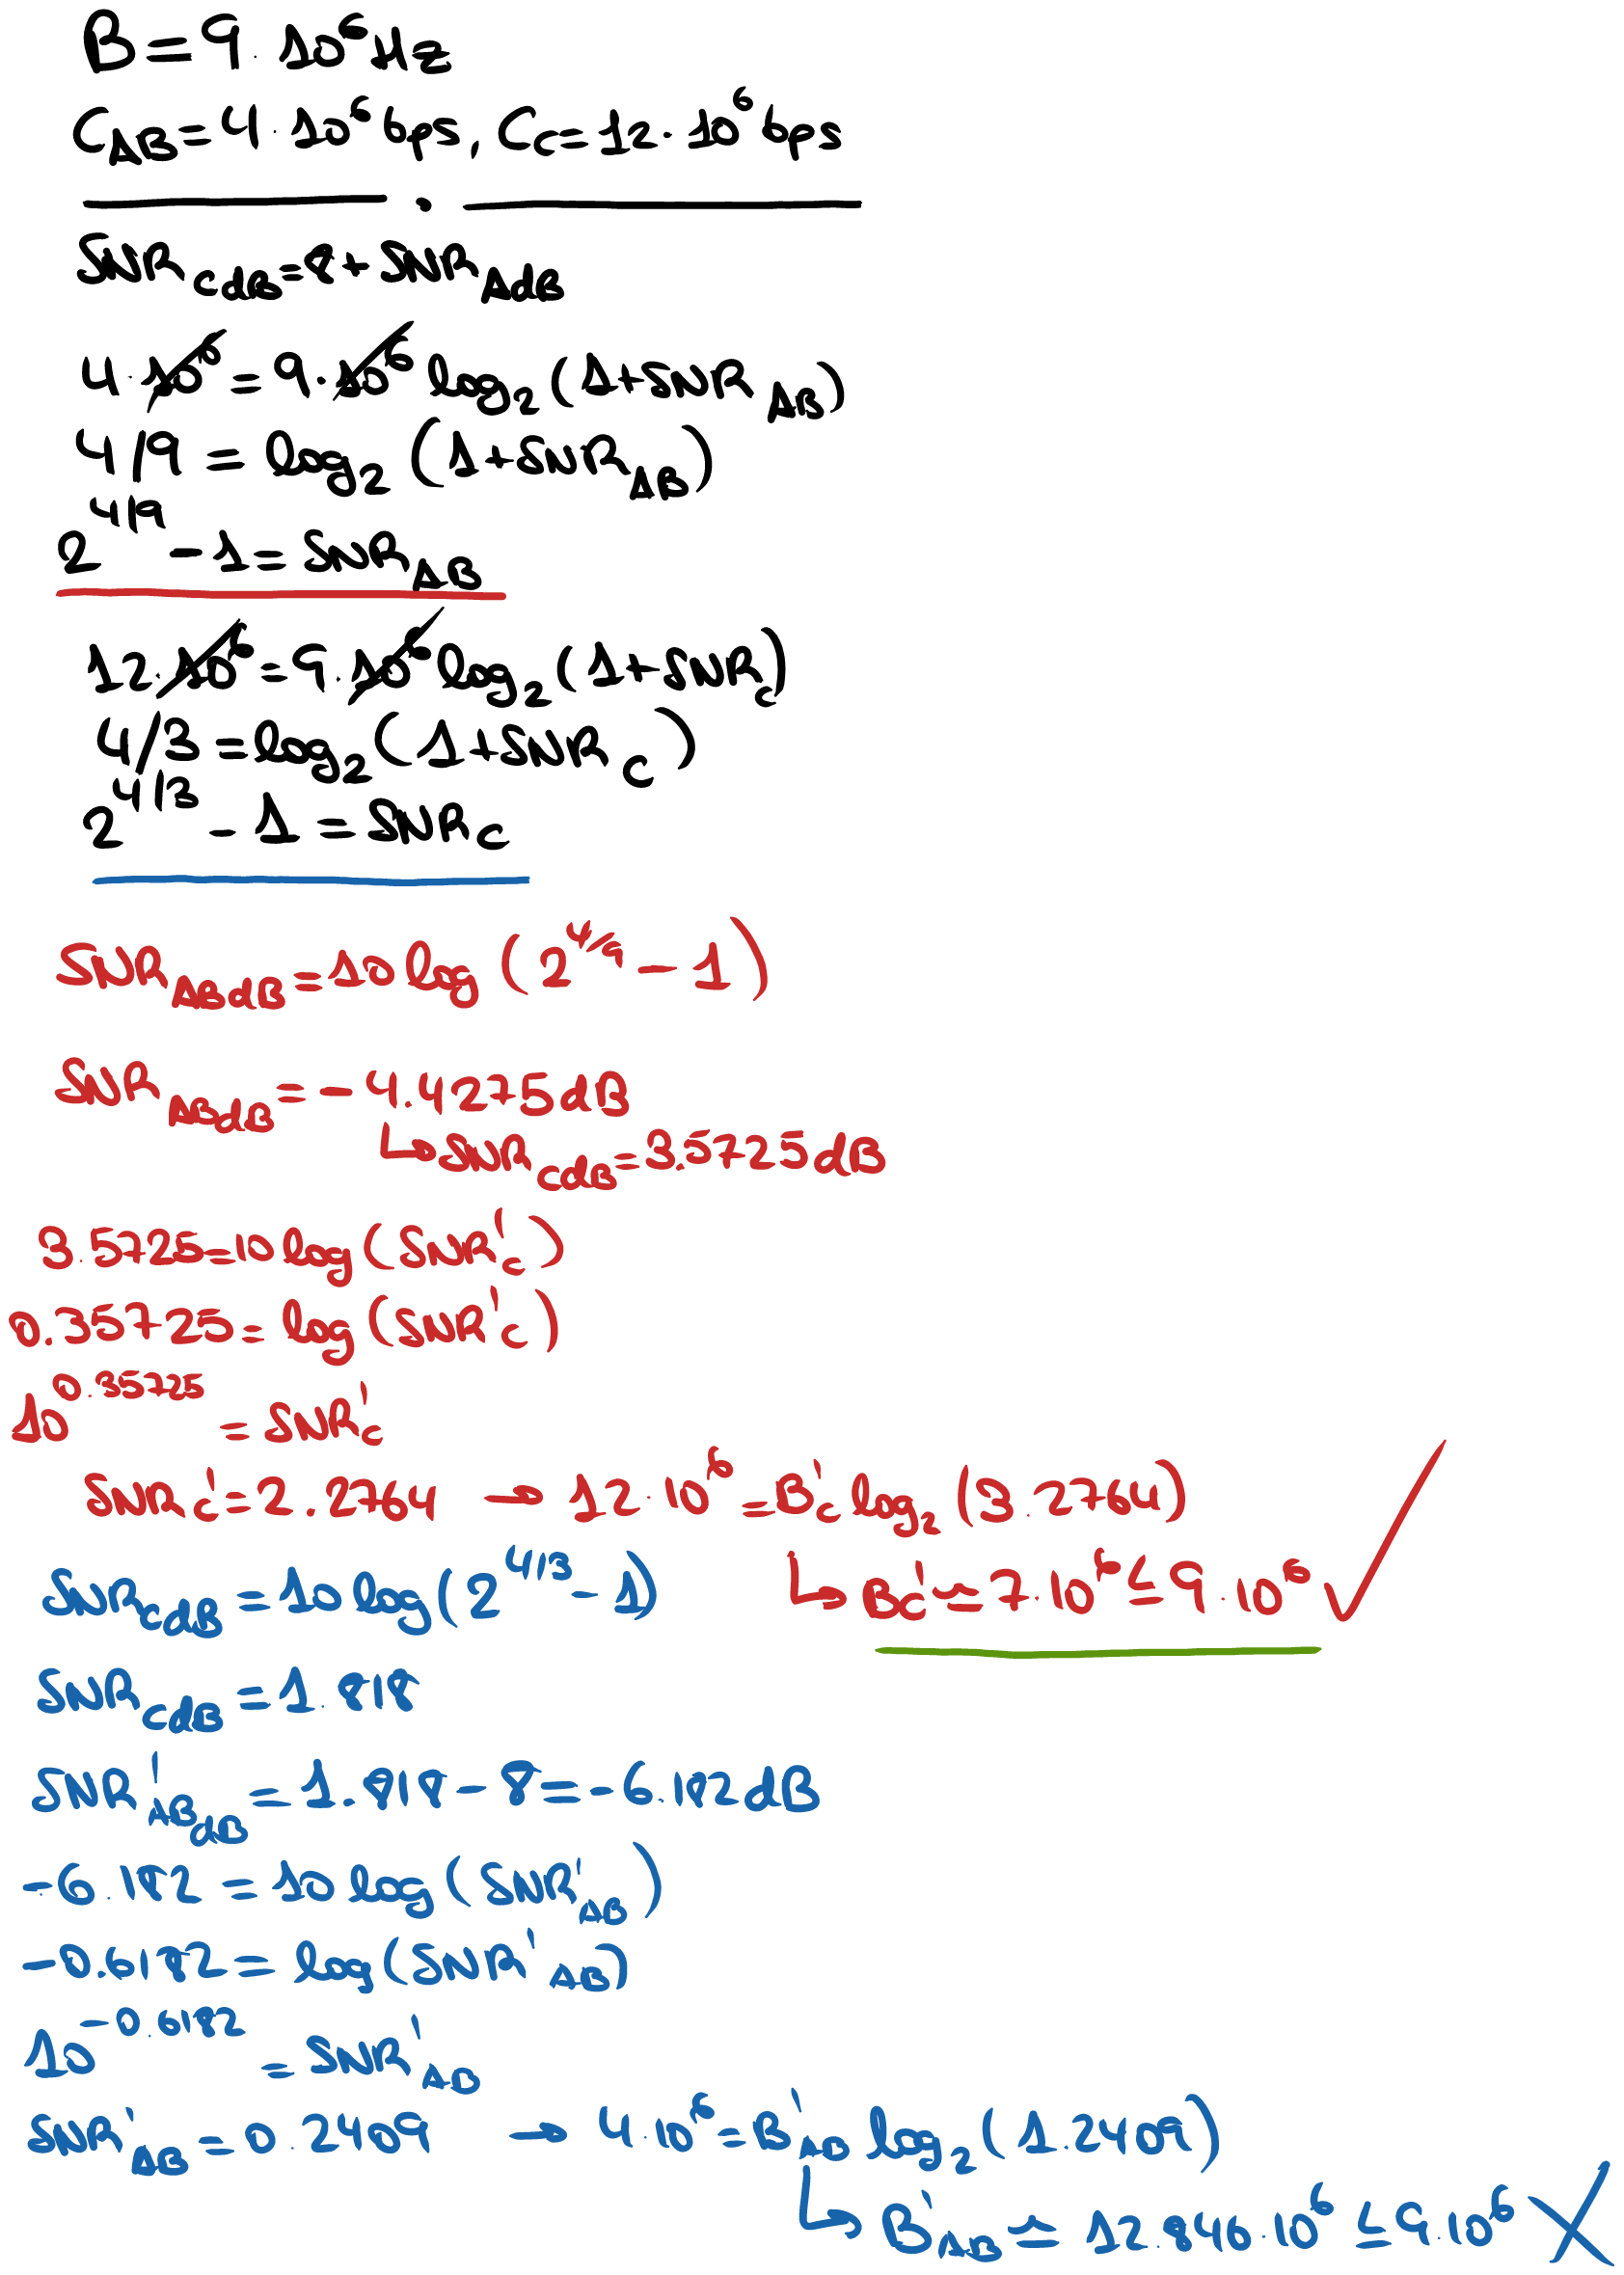 B=9·10⁶Hz
C_AB=4·10⁶bps, C_C=12·10⁶bps
SNR_CdB=8+SNR_AdB
4·10⁶=9·10⁶log₂(1+SNR_AB)
4/9=log₂(1+SNR_AB)
2^4/9-1=SNR_AB
12·10⁶=9·10⁶log₂(1+SNR_C)
4/3=log₂(1+SNR_C)
2^4/3-1=SNR_C
SNR_ABdB=10log(2^4/9-1)
SNR_ABdB=-4.4275dB
↳SNR_CdB=3.5725dB
3.5725=10log(SNR'_C)
0.35725=log(SNR'_C)
10^0.35725=SNR'_C
SNR'_C=2.2764 → 12·10⁶=B'_C log₂(3.2764)
↳ B'_C≃7·10⁶≤9·10⁶ ✓
SNR_CdB=10log(2^4/3-1)
SNR_CdB=1.818
SNR'_ABdB=1.818-8=-6.182dB
-6.182=10log(SNR'_AB)
-0.6182=log(SNR'_AB)
10^-0.6182=SNR'_AB
SNR'_AB=0.2409 → 4·10⁶=B'_AB log₂(1.2409)
↳ B'_AB≃12.846·10⁶≤9·10⁶ ✗